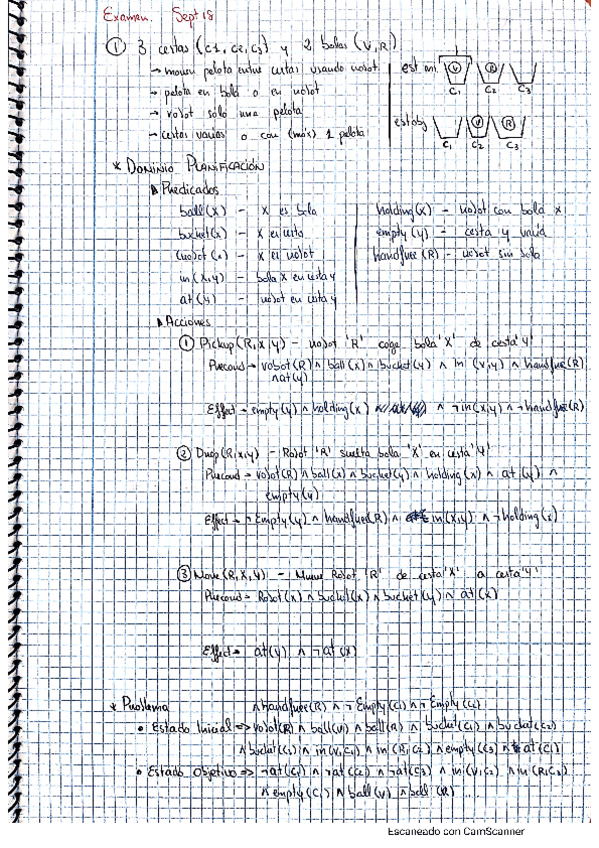 Examen. Sept 18
① 3 cestas (C1, C2, C3) y 2 bolas (V, R)
→ mover pelota entre cestas usando robot
→ pelota en bold o en robot
→ robot solo una pelota
→ cestas vacías o con (máx) 1 pelota
est ini. V R
C1 C2 C3
est obj V R
C1 C2 C3
* DOMINIO PLANIFICACIÓN
Predicados
ball(x) - x es bola
bucket(x) - x es cesta
robot(x) - x es robot
in(x,y) - bola x en cesta y
at(y) - robot en cesta y
holding(x) - robot con bola x
empty(y) - cesta y vacía
handfree(R) - robot sin bola
Acciones
① Pickup(R,x,y) - robot 'R' coge bola 'X' de cesta 'y'
Precond → robot(R) ∧ ball(x) ∧ bucket(y) ∧ in(x,y) ∧ handfree(R)
∧at(y)
Effect → empty(y) ∧ holding(x) ∧ ¬in(x,y) ∧ ¬handfree(R)
② Drop(R,x,y) - Robot 'R' suelta bola 'X' en cesta 'y'
Precond → robot(R) ∧ ball(x) ∧ bucket(y) ∧ holding(x) ∧ at(y) ∧
empty(y)
Effect → ¬Empty(y) ∧ handfree(R) ∧ in(x,y) ∧ ¬holding(x)
③ Move(R,X,y) - Mueve Robot 'R' de cesta 'X' a cesta 'y'
Precond → Robot(x) ∧ bucket(x) ∧ bucket(y) ∧ at(x)
Effect → at(y) ∧ ¬at(x)
* Problema
∧handfree(R) ∧ ¬Empty(C1) ∧ ¬Empty(C2)
• Estado Inicial => robot(R) ∧ ball(V) ∧ ball(R) ∧ bucket(C1) ∧ bucket(C2)
∧ bucket(C3) ∧ in(V,C1) ∧ in(R,C2) ∧ empty(C3) ∧ at(C1)
• Estado Objetivo => ¬at(C1) ∧ ¬at(C2) ∧ ¬at(C3) ∧ in(V,C2) ∧ in(R,C3)
∧ empty(C1) ∧ ball(V) ∧ ball(R)
Escaneado con CamScanner